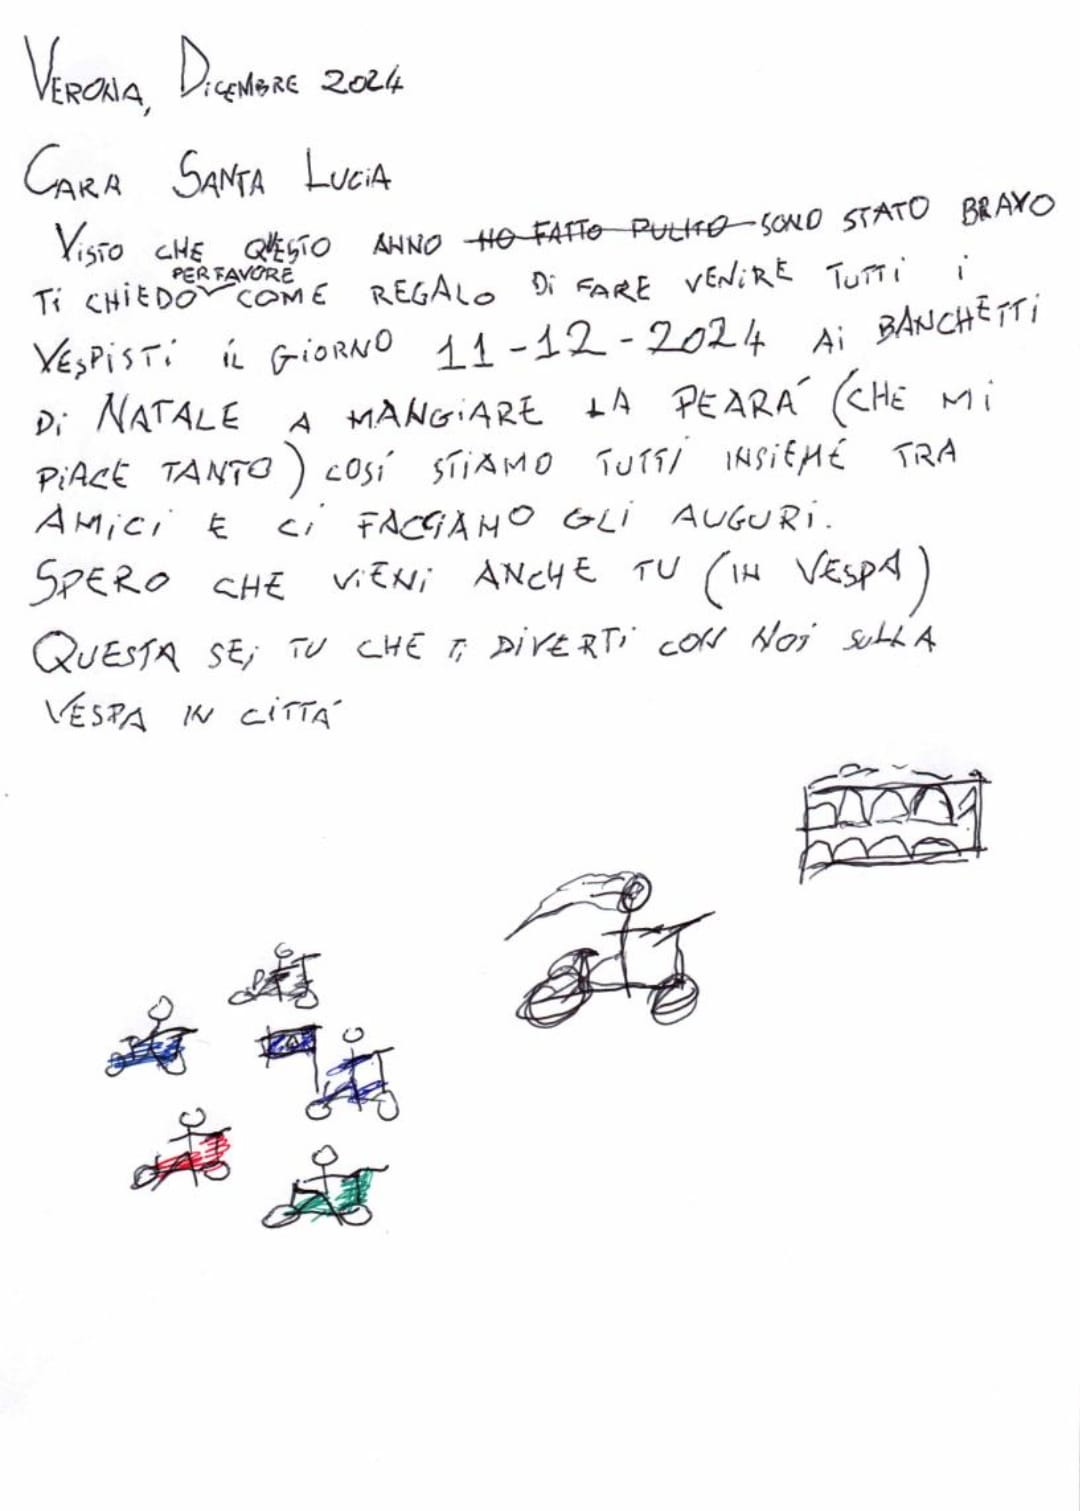 VERONA, DICEMBRE 2024
CARA SANTA LUCIA
VISTO CHE QUESTO ANNO HO FATTO PULITO SONO STATO BRAVO
PER FAVORE
TI CHIEDO COME REGALO DI FARE VENIRE TUTTI I
VESPISTI IL GIORNO 11-12-2024 AI BANCHETTI
DI NATALE A MANGIARE LA PEARÁ (CHE MI
PIACE TANTO) COSÍ STIAMO TUTTI INSIEME TRA
AMICI E CI FACCIAMO GLI AUGURI.
SPERO CHE VIENI ANCHE TU (IN VESPA)
QUESTA SEI TU CHE TI DIVERTI CON NOI SULLA
VESPA IN CITTÁ